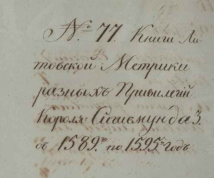 № 77 Книги Ли
товской Метрики
разныхъ Привилегій
Короля Сигизмунда 3.
съ 1589 го по 1595 годъ.